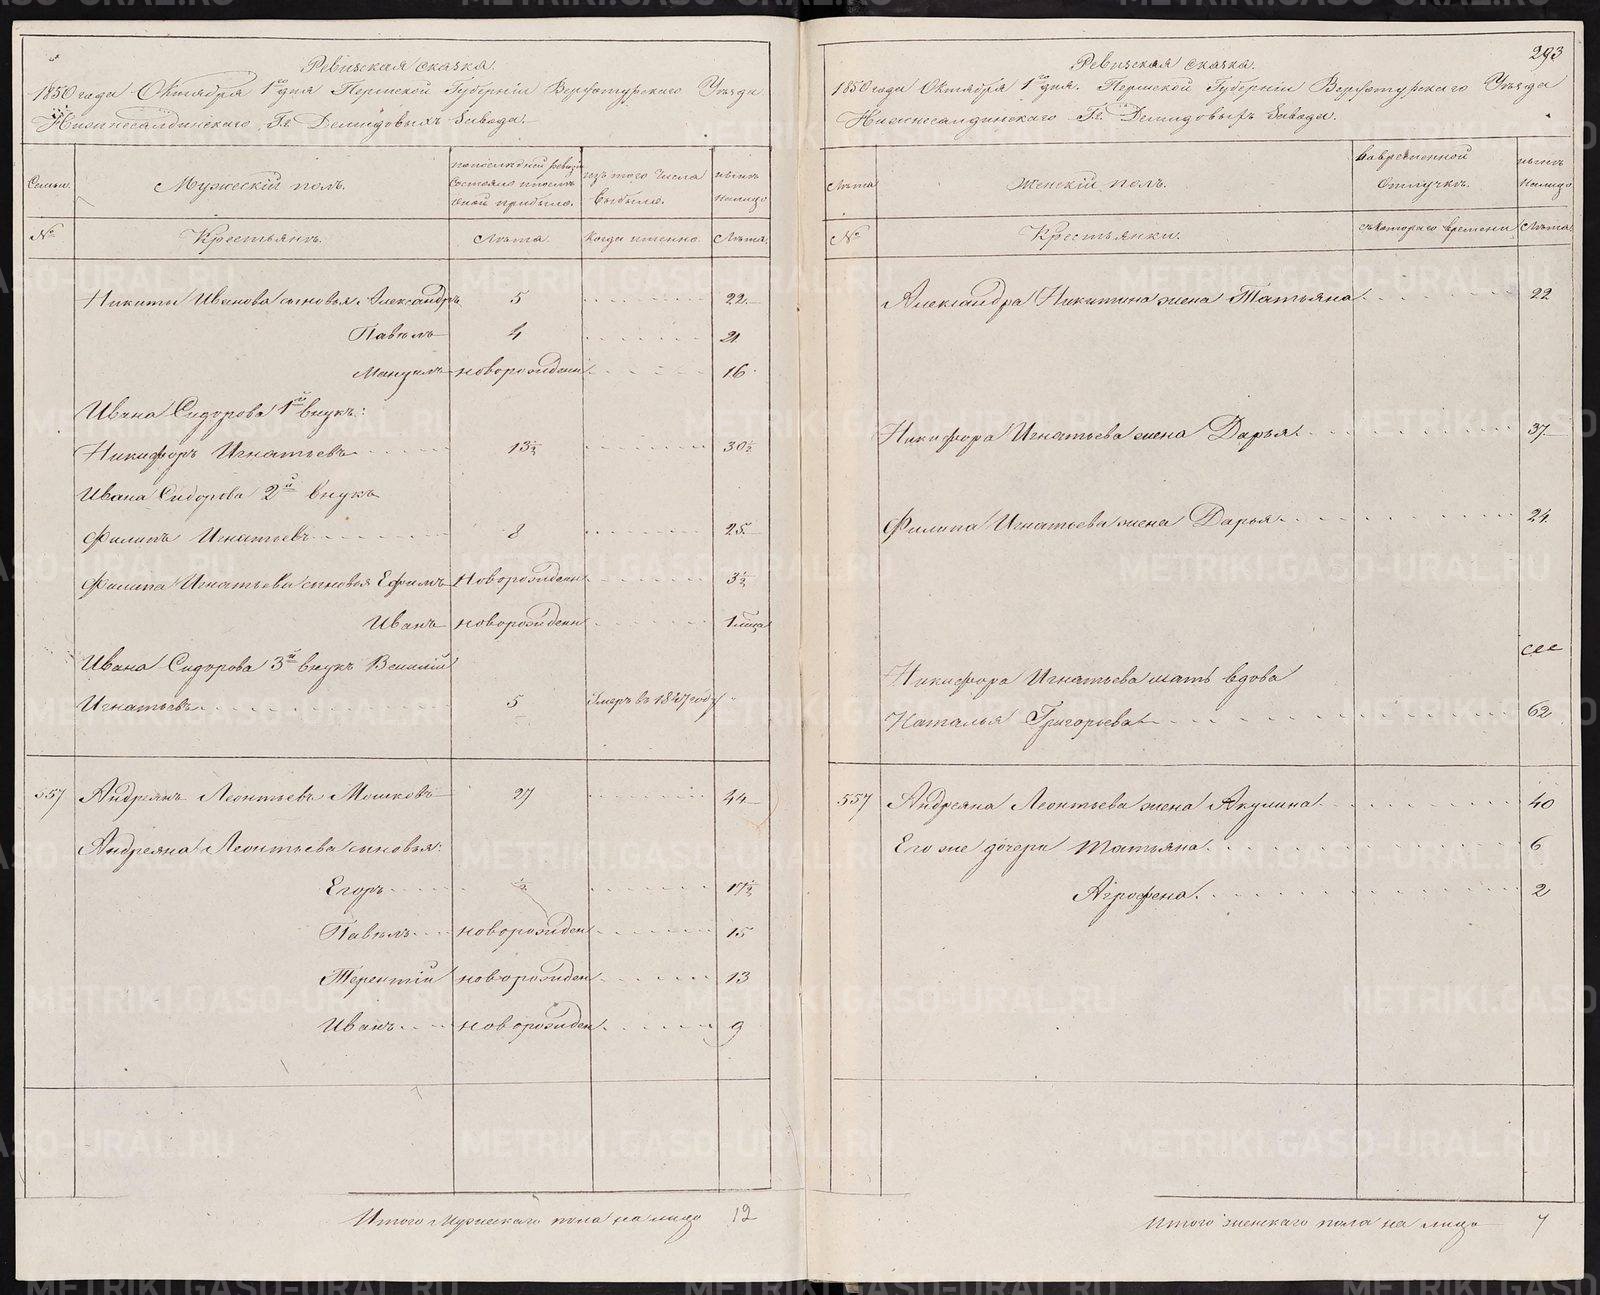 Ревизская сказка.
1850 года Октября 1го дня Пермской Губернiи Верхотурскаго Уѣзда
Нижнесалдинскаго Гг. Демидовыхъ Завода.
Семьи. Мужескiй полъ. по последней ревизiи состояло и после оной прибыло. изъ того числа выбыло. нынѣ на лицо
№ Крестьянъ. Лѣта. Когда именно. Лѣта.
Никиты Иванова сыновья Александръ 5 22
Павелъ 4 21
новорожден 16
Ивана Сидорова 1й внукъ:
Никифоръ Игнатьевъ 13½ 30½
Ивана Сидорова 2й внукъ
Филипъ Игнатьевъ 8 25
Филипа Игнатьева сыновья Ефимъ Новорожден 3½
Иванъ новорожден 1 мѣсяца
Ивана Сидорова 3й внукъ Василiй
Игнатьевъ 5 Умеръ въ 1847 году
557 Андреянъ Леонтьевъ Мошковъ 27 44
Андреяна Леонтьева сыновья:
Егоръ ½ 17½
Павелъ новорожден 15
Терентiй новорожден 13
Иванъ новорожден 9
Итого мужескаго пола на лицо 12
293
Ревизская сказка.
1850 года Октября 1го дня. Пермской Губернiи Верхотурскаго Уѣзда
Нижнесалдинскаго Гг. Демидовыхъ Завода.
Лѣта Женскiй полъ. во временной отлучкѣ. нынѣ на лицо
№ Крестьянки. съ котораго времени Лѣта.
Александра Никитина жена Татьяна 22
Никифора Игнатьева жена Дарья 37
Филипа Игнатьева жена Дарья 24
Никифора Игнатьева мать вдова
Наталья Григорьева 62
557 Андреяна Леонтьева жена Акулина 40
Его же дочери Татьяна 6
Агрофена 2
Итого женскаго пола на лицо 7
METRIKI.GASO-URAL.RU